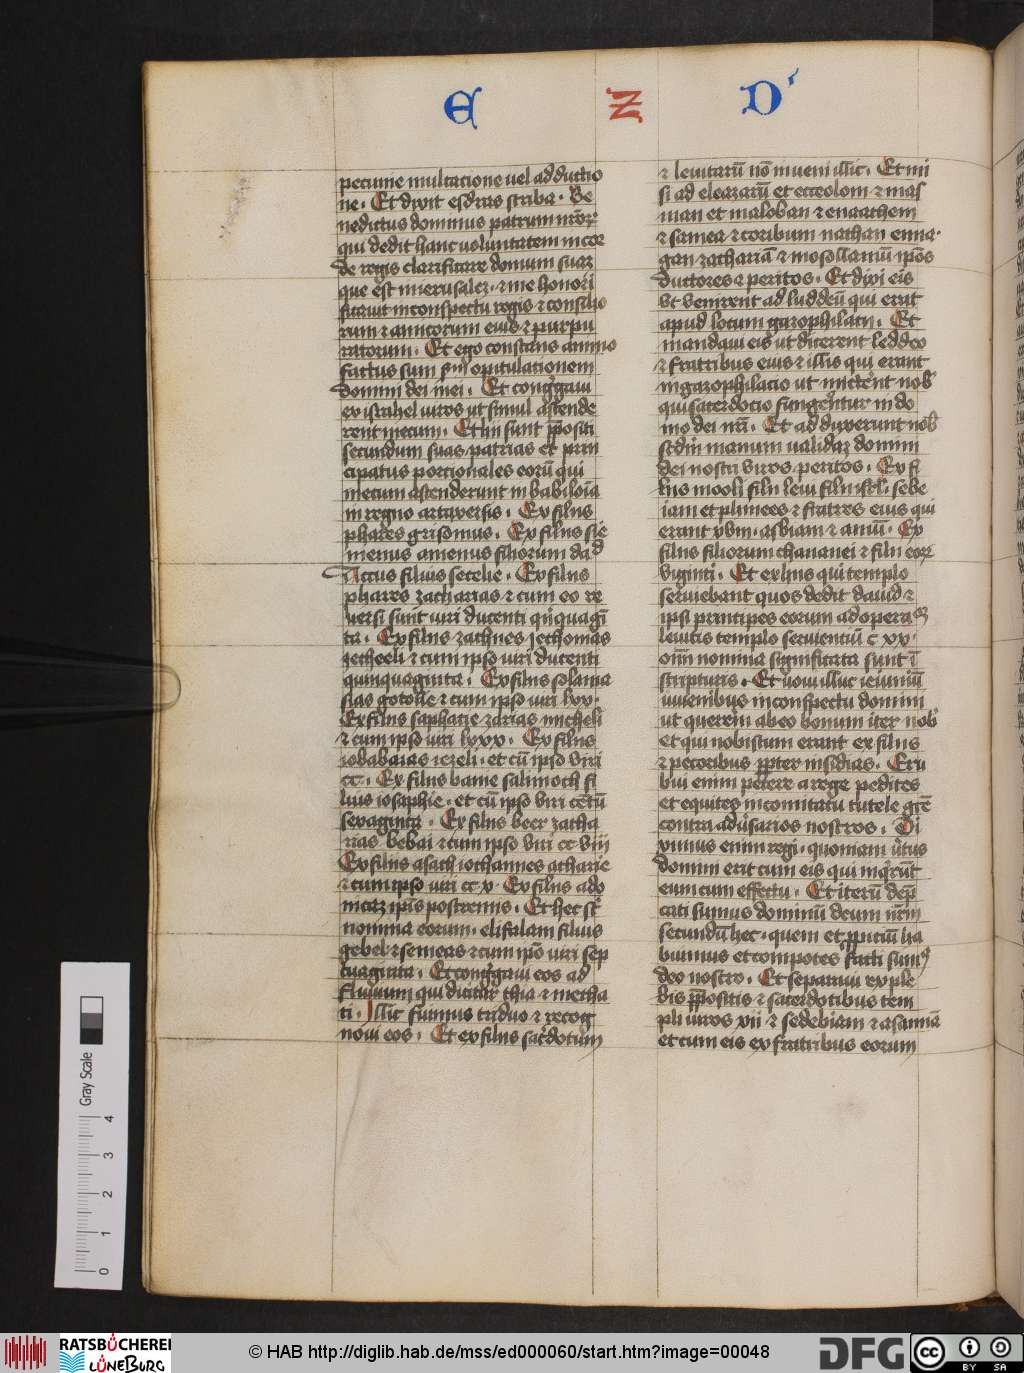 E Z D
pecunie multacione uel adductio
ne. Et dixit esdras scriba. Be
nedictus dominus patrum nr̄or
qui dedit hanc uoluntatem in cor
de regis clarificare domum suaz
que est in ierusalez. et me honori
ficauit in conspectu regis et consilio
rum et amicorum eius et purpu
ratorum. Et ego constans animo
factus sum sm̄ opitulationem
domini dei mei. Et congregaui
ex israhel uiros ut simul ascende
rent mecum. Et hii sunt p̄positi
secundum suas patrias et prin
cipatus porcionales eorū qui
mecum ascenderunt in babiloīa
in regno artaxersis. Ex filiis
phares grisomus. Ex filiis sie
menus amenus filiorum dad
Accus filius secelie. Ex filiis
phares zacharias et cum eo re
uersi sunt uiri ducenti qīquagī
ta. Ex filiis zachues zechomas
zecheeli et cum ipso uiri ducenti
quinquaginta. Ex filiis solama
sias gotolie et cum ipso uiri lxx.
Ex filiis saphacie zarias micheli
et cum ipso uiri lxxx. Ex filiis
iobabaias iezeli. et cū ipso viri
cc. Ex filiis banie salimoth fi
lius iosaphie. et cū ipso viri cētū
sexaginta. Ex filiis beer zacha
rias bebai et cum ipso viri cc viij
Ex filiis asach iohannes acharie
et cum ipso uiri cc x. Ex filiis ado
nicaz ip̄is postremis. Et hec st̄
nomina eorum. elifalam filius
gebel et semeas et cum ip̄o uiri sep
tuaginta. Et congregaui eos ad
fluuium qui dicitur thia et metha
ti. Illic fuimus triduo et recog
noui eos. Et ex filiis sac̄dotum
et leuitarū nō inueni illic. Et mi
si ad eleazarū et ecceolom et mas
man et maloban et enaathem
et samea et coribum nathan enna.
gan zachariā et mosollamū ip̄os
ductores et peritos. Et dixi eis
vt venirent ad luddeū qui erat
apud locum gazophilacij. Et
mandaui eis ut dicerent leddeo
et fratribus eius et illis qui erant
in gazophilacio ut mitterēt nob
qui sacerdocio fungerentur in do
mo dei nr̄i. Et adduxerunt nob
scdm̄ manum ualidaz domini
dei nostri viros peritos. Ex fi
liis mooli filii leui filii isrl. sebe
iam et filios et fratres eius qui
erant xviii. asbiam et amiū. Ex
filiis filiorum chananei et filii eor
viginti. Et ex hiis qui templo
seruiebant quos dedit dauid et
ipsi principes eorum ad opera
leuitis templo seruientiū c xx.
oīm nomina significata sunt ī
scripturis. Et uoui illuc ieiuniū
iuuenibus in conspectu domini
ut querem ab eo bonum iter nob
et qui nobiscum erant ex filiis
et pecoribus p̄pter insidias. Eru
bui enim petere a rege pedites
et equites in comitatu tutele grē
contra adu̓sarios nostros. Di
ximus enim regi. quoniam u̓tus
domini erit cum eis qui inq̓rūt
eum cum effectu. Et iterū dep̄
cati sumus dominū deum nr̄m
secundū hec. quem et p̄piciū ha
buimus et compotes facti sum
deo nostro. Et separaui ex ple
bis p̄positis et sacerdotibus tem
pli viros xii et sedebiam et asamiā
et cum eis ex fratribus eorum
Gray Scale
0 1 2 3 4
RATSBÜCHEREI
LÜNEBURG
© HAB http://diglib.hab.de/mss/ed000060/start.htm?image=00048
DFG
cc BY SA